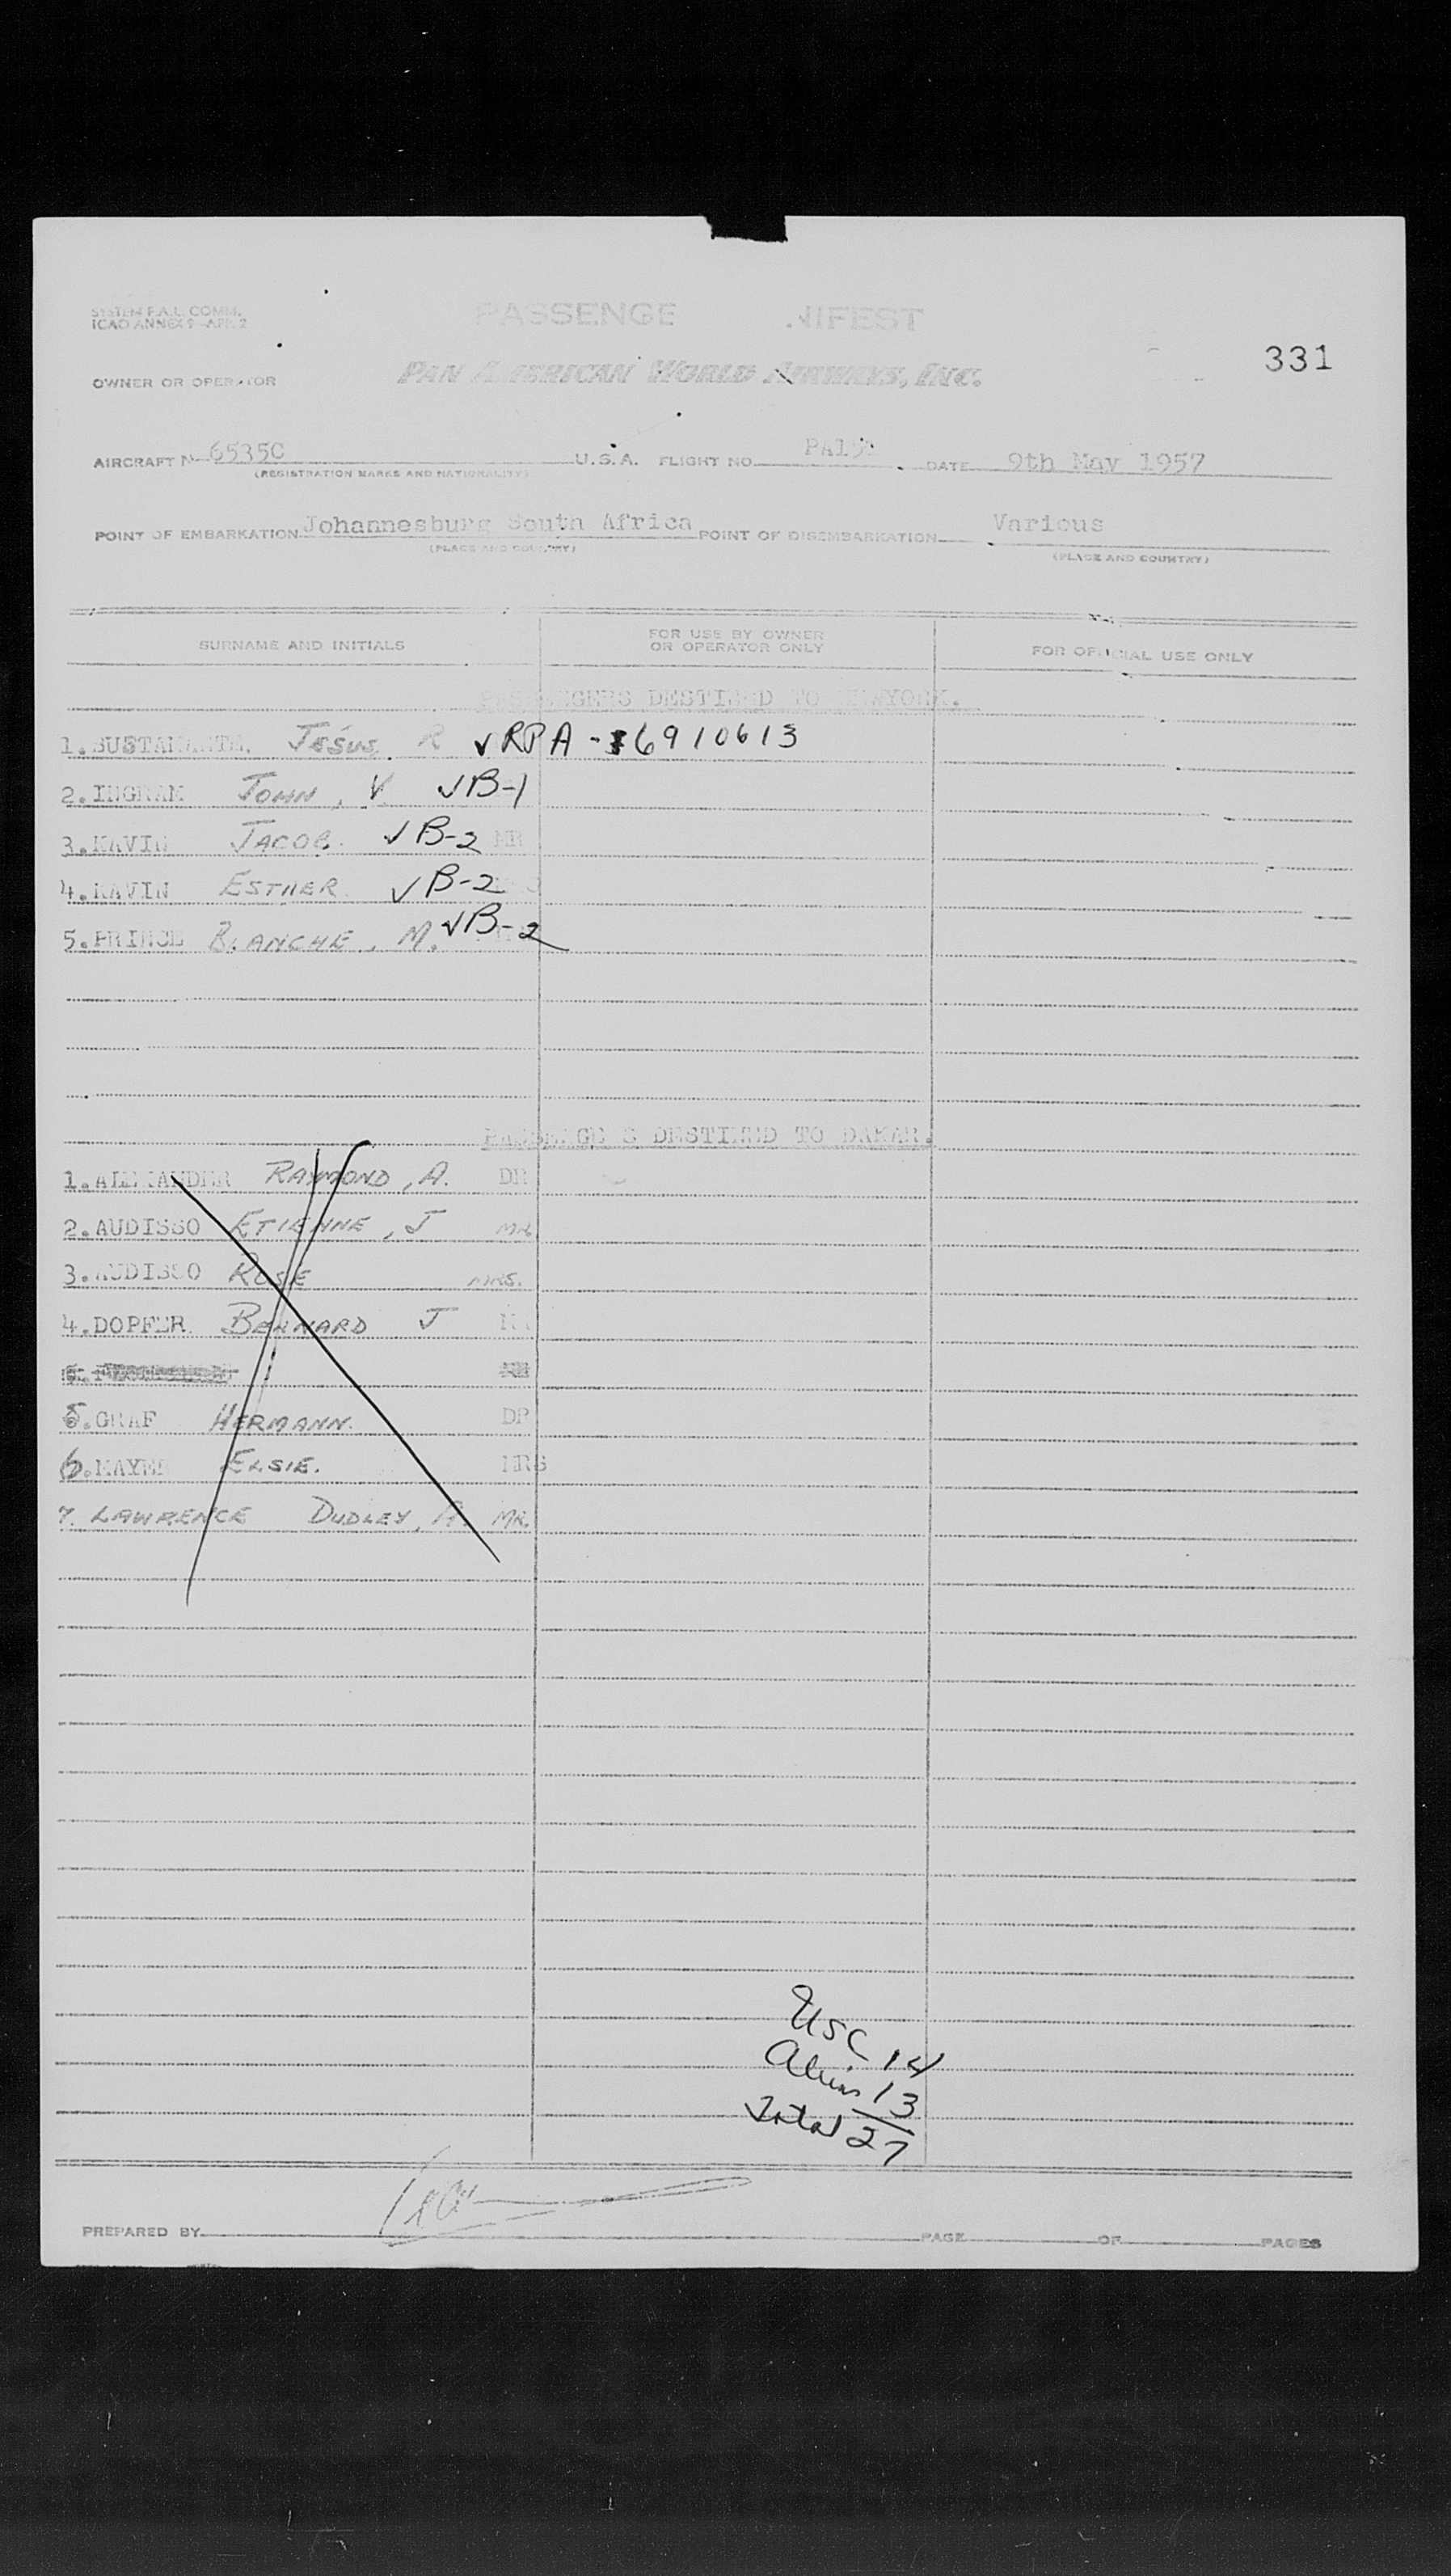 SYSTEM F.A.L. COMM.
ICAO ANNEX 9-APP. 2
PASSENGE NIFEST
331
OWNER OR OPERATOR
PAN AMERICAN WORLD AIRWAYS, INC.
AIRCRAFT N 6535C U.S.A. FLIGHT NO. DATE 9th May 1957
(REGISTRATION MARKS AND NATIONALITY)
POINT OF EMBARKATION Johannesburg South Africa POINT OF DISEMBARKATION Various
(PLACE AND COUNTRY) (PLACE AND COUNTRY)
SURNAME AND INITIALS FOR USE BY OWNER OR OPERATOR ONLY FOR OFFICIAL USE ONLY
PASSENGERS DESTINED TO NEWYORK.
1. BUSTAMANTE. JESÚS R √ RPA - 6910613
2. INGRAM JOHN, V √ B-1
3. KAVIN JACOB. √ B-2 MR
4. KAVIN ESTHER. √ B-2
5. PRINCE BLANCHE, M. √ B-2
PASSENGERS DESTINED TO DAKAR.
1. ALEXANDER RAYMOND, A. DR
2. AUDISSO ETIENNE, J MR
3. AUDISSO ROSE MRS.
4. DOPFER BERNARD J
5. GRAF HERMANN. DR
6. MAYER ELSIE. MRS
7. LAWRENCE DUDLEY, A. MR.
USC 14
Aliens 13
Total 27
PREPARED BY PAGE OF PAGES